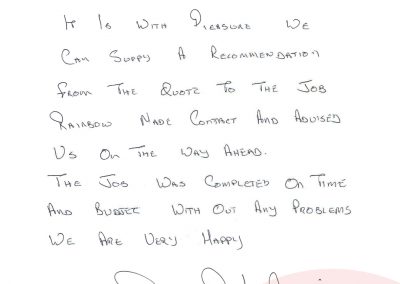 It Is With Pleasure We
Can Supply A Recommendation
From The Quote To The Job
Rainbow Made Contact And Advised
Us On The Way Ahead.
The Job Was Completed On Time
And Budget With Out Any Problems
We Are Very Happy